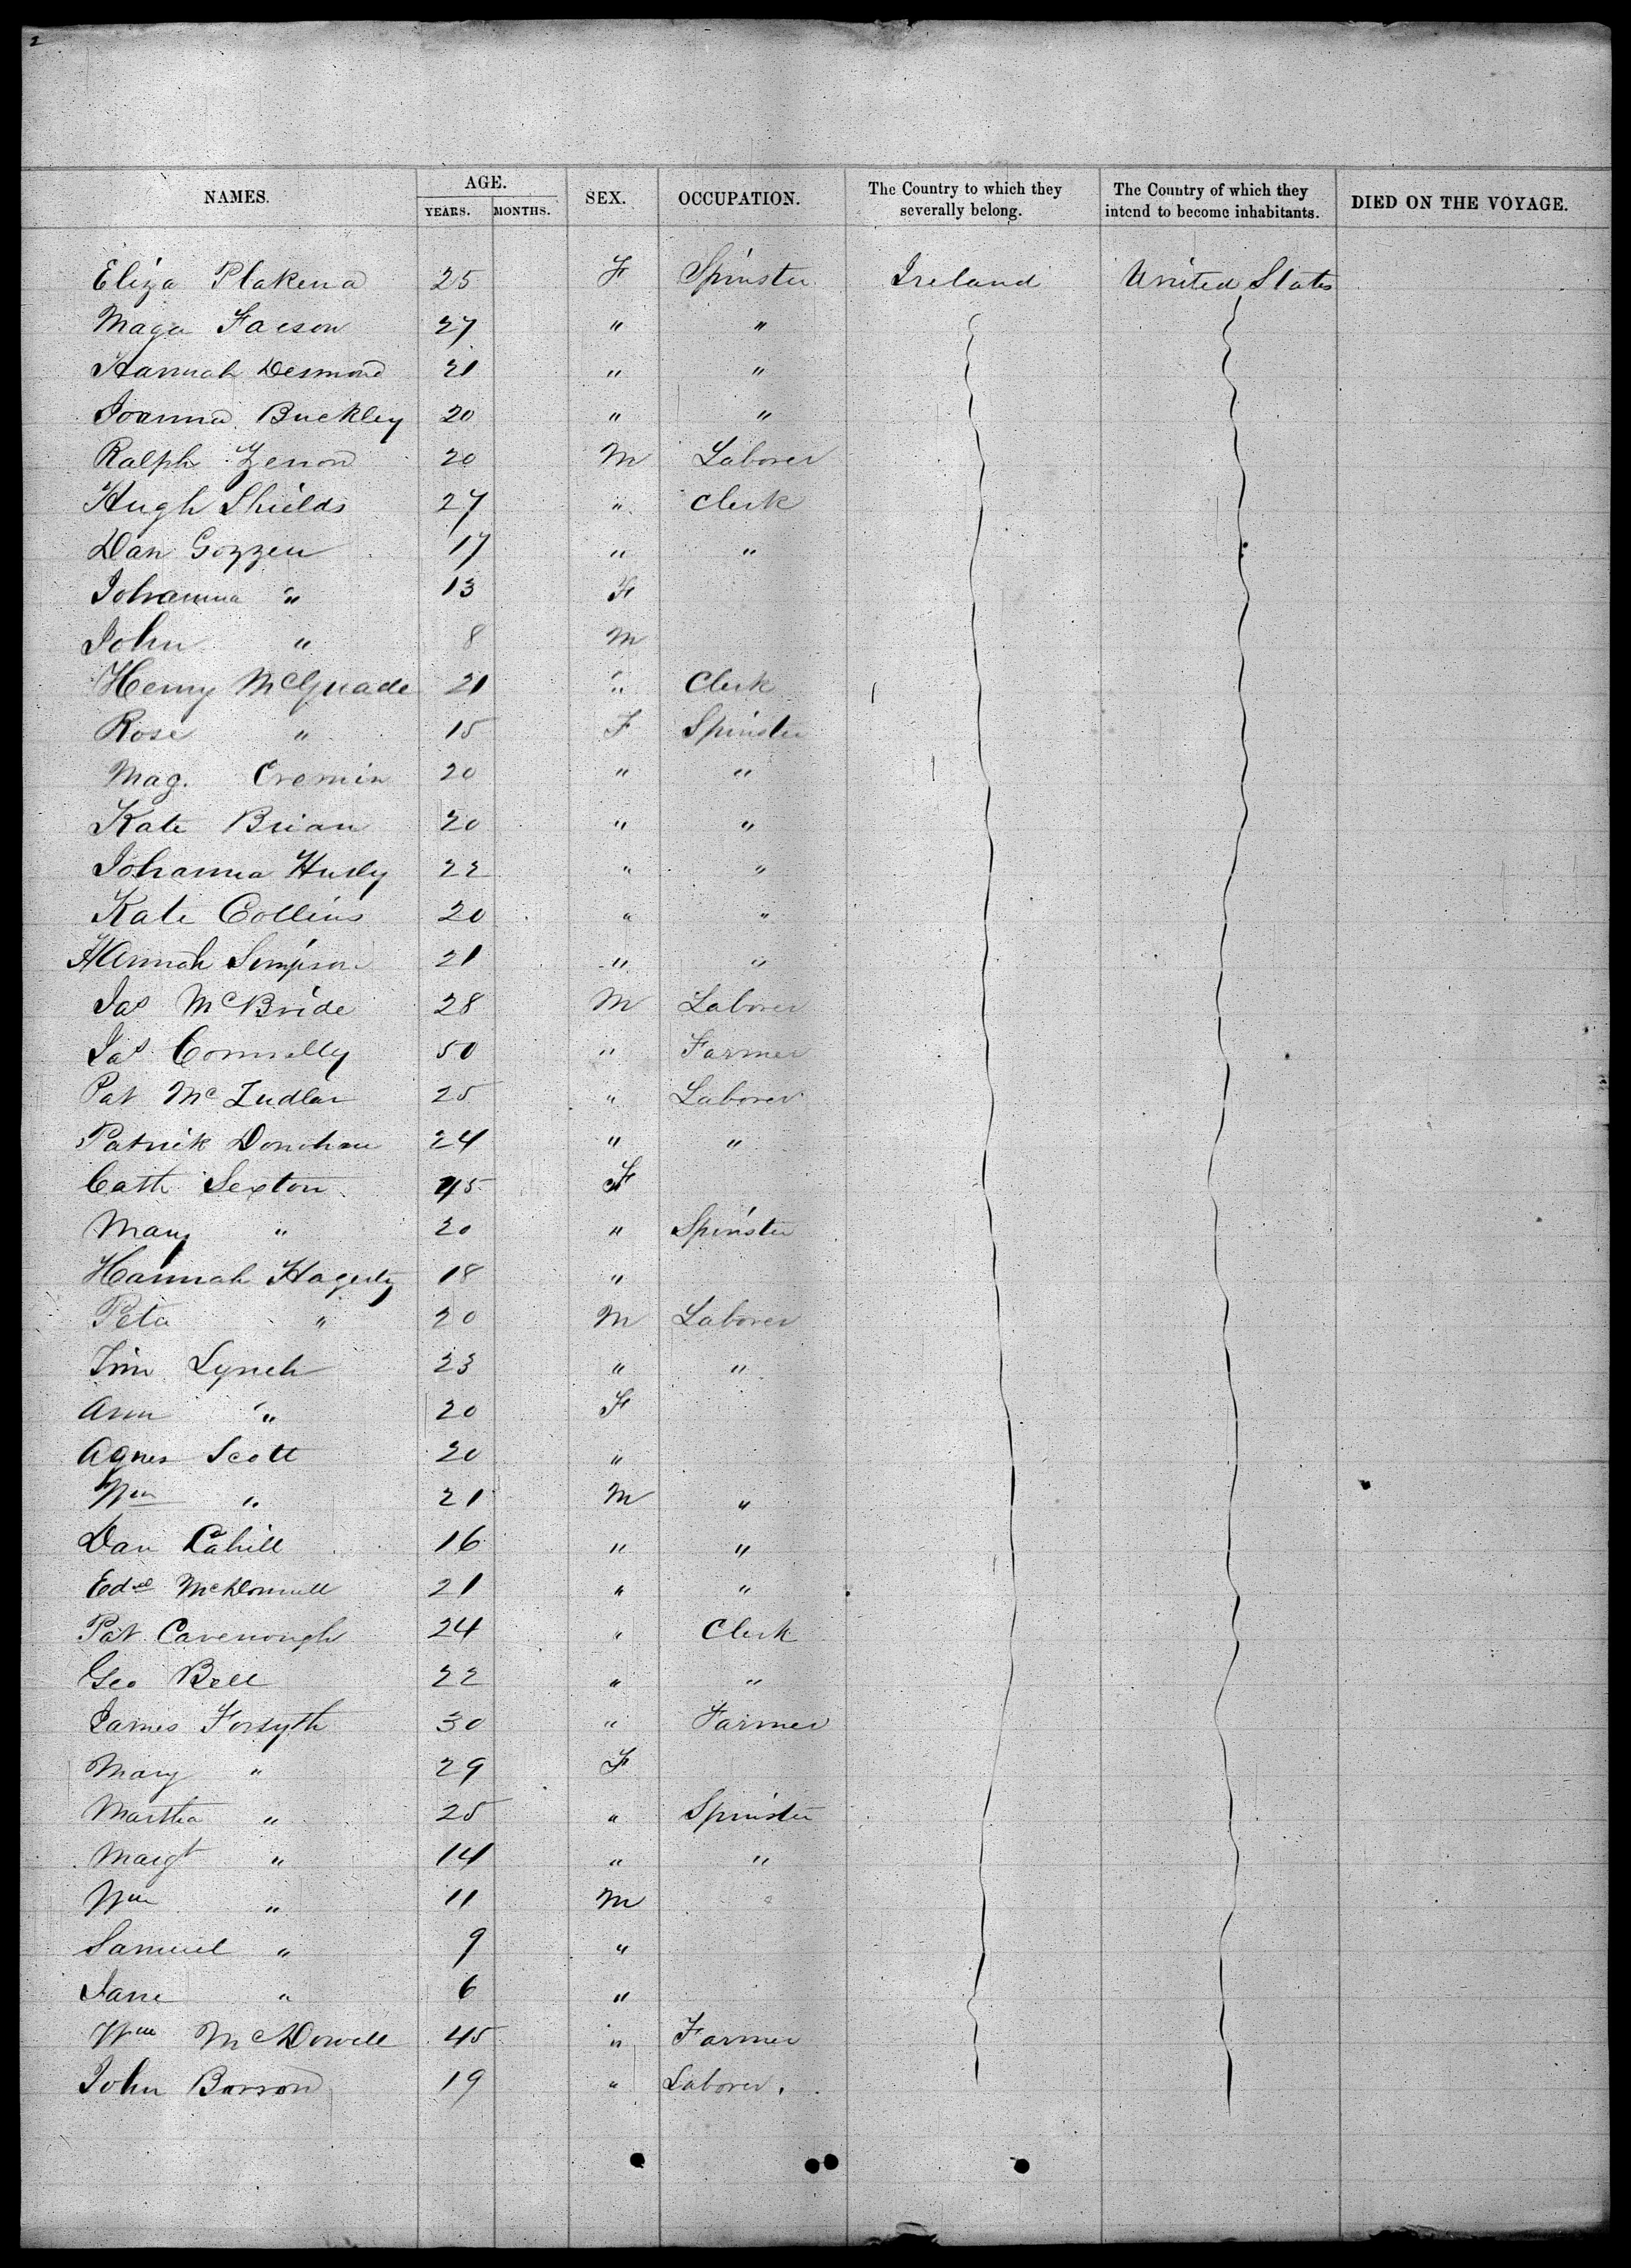 2
NAMES. AGE. YEARS. MONTHS. SEX. OCCUPATION. The Country to which they severally belong. The Country of which they intend to become inhabitants. DIED ON THE VOYAGE.
Eliza Plakena 25 F Spinster Ireland United States
Maga Facson 27 " "
Hannah Desmond 21 " "
Joanna Buckley 20 " "
Ralph Zenon 20 M Laborer
Hugh Shields 27 " Clerk
Dan Gozzen 17 " "
Johanna " 13 F
John " 8 M
Henry McQuade 21 " Clerk
Rose " 15 F Spinster
Mag. Cremin 20 " "
Kate Brian 20 " "
Johanna Hurly 22 " "
Kate Collins 20 " "
Hannah Simpson 21 " "
Jas McBride 28 M Laborer
Jas Connelly 50 " Farmer
Pat Mc 25 " Laborer
Patrick Donohue 24 " "
Cath Sexton 45 F
Mary " 20 " Spinster
Hannah Hagerty 18 "
Peter " 20 M Laborer
Tim Lynch 23 " "
Ann " 20 F
Agnes Scott 20 "
Wm " 21 M "
Dan Cahill 16 " "
Edwd McDonnell 21 " "
Pat Cavenough 24 " Clerk
Geo Bell 22 " "
James Forsyth 30 " Farmer
Mary " 29 F
Martha " 25 " Spinster
Margt " 14 " "
Wm " 11 M
Samuel " 9 "
Jane " 6 "
Wm McDowell 45 " Farmer
John Borson 19 " Laborer.